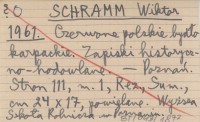 SCHRAMM Wiktor
1961. Czerwone polskie bydło
karpackie. Zapiski historycz-
no-hodowlane. — Poznań.
Stron 111, m. 1, Rez., Sum.,
cm 24 x 17, powielane. Wyższa
Szkoła Rolnicza w Poznaniu